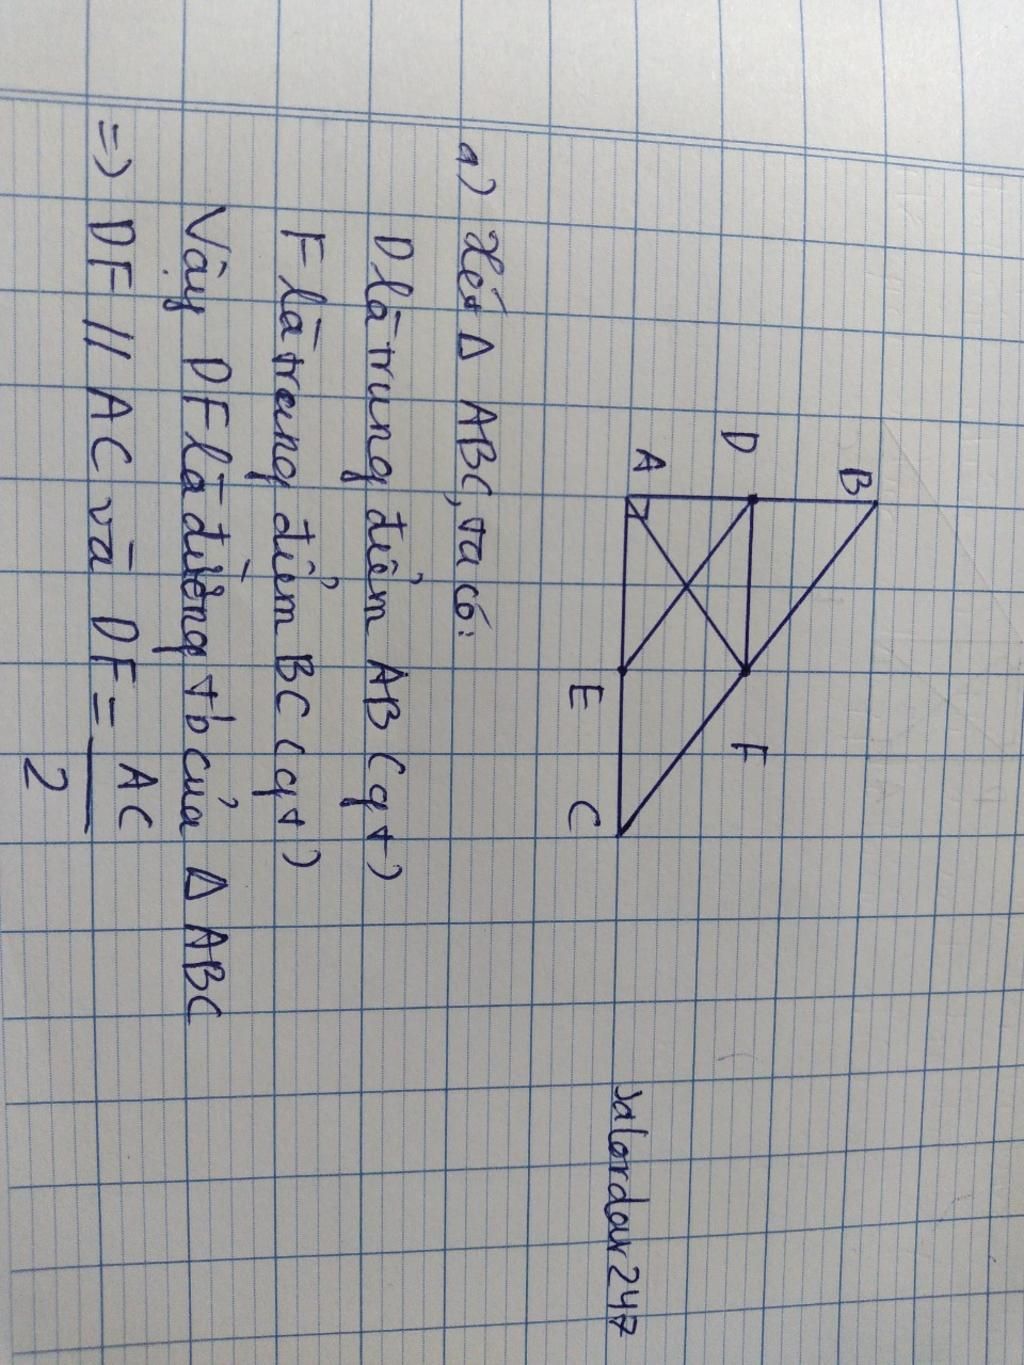 B
D
F
A
E
C
Jalordar247
a) Xét Δ ABC, ta có:
D là trung điểm AB (gt)
F là trung điểm BC (gt)
Vậy DF là đường tb của Δ ABC
=) DF // AC và DF = AC
2